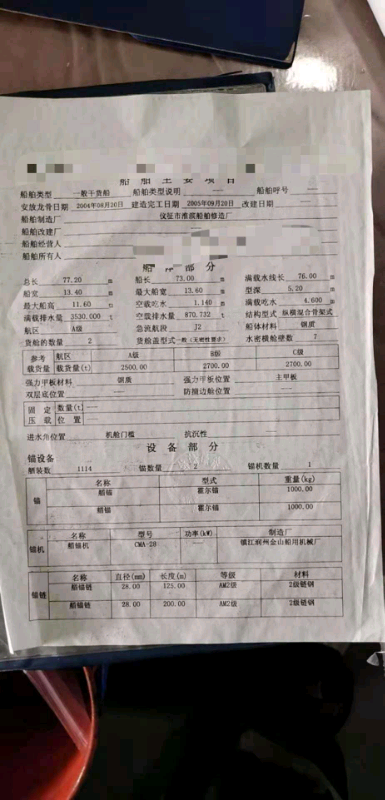 船舶主要项目
船舶类型 一般干货船 船舶类型说明 —— 船舶呼号 ——
安放龙骨日期 2004年08月20日 建造完工日期 2005年09月20日 改建日期
船舶制造厂 仪征市淮滨船舶修造厂
船舶改建厂
船舶经营人
船舶所有人
船体部分
总长 77.20 m 船长 73.00 m 满载水线长 76.00 m
船宽 13.40 m 最大船宽 13.60 m 型深 5.20 m
最大船高 11.60 m 空载吃水 1.140 m 满载吃水 4.600 m
满载排水量 3530.000 t 空载排水量 870.732 t 结构型式 纵横混合骨架式
航区 A级 急流航段 J2 船体材料 钢质
货舱的数量 2 货舱盖型式 一般(无密性要求) 水密横舱壁数 7
参考 航区 A级 B级 C级
载货量 载货量(t) 2500.00 2700.00 2700.00
强力甲板材料 钢质 强力甲板位置 主甲板
双层底位置 —— 防撞边舱位置 ——
固定 数量(t) ——
压载 位置 ——
进水角位置 —— 机舱门槛 —— 抗沉性 ——
设备部分
锚设备
舾装数 1114 锚数量 2 锚机数量 1
锚 名称 型式 重量(kg)
艏锚 霍尔锚 1000.00
艏锚 霍尔锚 1000.00
锚机 名称 型号 功率(kW) 制造厂
艏锚机 CMA-28 —— 镇江润州金山船用机械厂
锚链 名称 直径(mm) 长度(m) 等级 材料
艏锚链 28.00 125.00 AM2级 2级链钢
艏锚链 28.00 200.00 AM2级 2级链钢